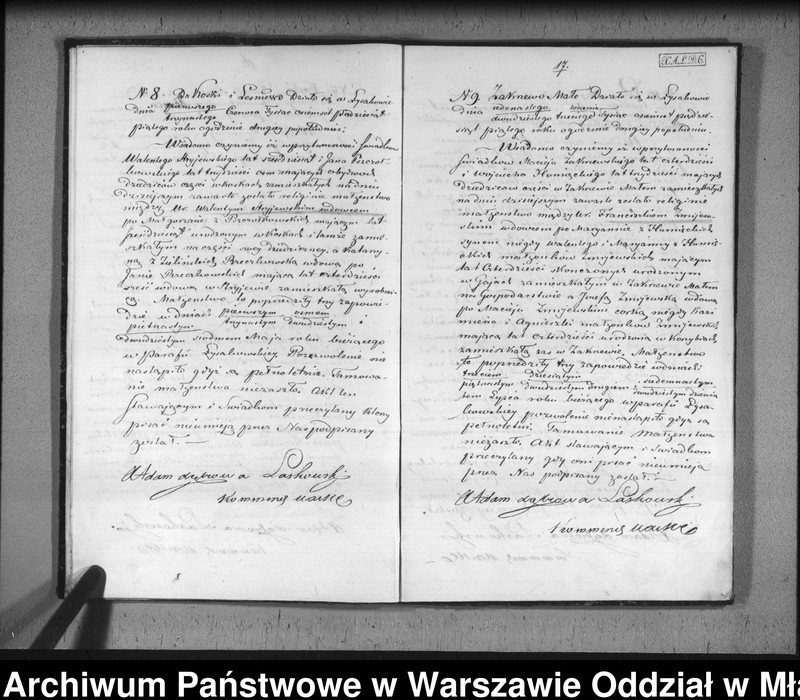 № 8. Koski i Lesniewo Działo się w Łysakowie
dnia pierwszego/trzynastego Czerwca Tysiąc ośmset pięćdziesiąt
piątego roku o godzinie drugiej popołudniu:
— Wiadomo czynimy iż w przytomności świadków
Walentego lat sześćdziesiąt i Jana
lat trzydzieści ośm mających obydwóch
dziedziców części w Koskach zamieszkałych na dniu
dzisiejszym zawarte zostało religijne małżeństwo
między Ur. Walentym Stryjewskim wdowcem
po Małgorzacie z mającym lat
pięćdziesiąt urodzonym w Koskach i tamże zamie
szkałym na części swej dziedzicznej, a Katarzy
ną z Zielińskich wdową po
Janie mającą lat czterdzieści
sześć wdową w Stryjewie zamieszkałą
Małżeństwo to poprzedziły trzy zapowie
dzie w dniach pierwszym ośmem/piętnastym trzynastym dwudziestym i
dwudziestym siódmem Maja roku bieżącego
w Parafii Łysakowskiej Pozwolenie nie
nastąpiło gdyż są pełnoletnie. Tamowa
nie małżeństwa niezaszło. Akt ten
stawającym i Świadkom przeczytany którzy
pisać nieumieją przez Nas podpisany
został. —
X Adam Dąbrowa Laskowski
Kommend
17.
X.A.L.D.6.
№ 9. Żaknewo Małe Działo się w Łysakowie
dnia jedenastego/dwudziestego trzeciego Tysiąc ośmset pięćdzie
siąt piątego roku o godzinie drugiej popołudniu.
— Wiadomo czynimy iż w przytomności
świadków Macieja Żaknewskiego lat czterdzieści
i Wojciecha lat trzydzieści mających
Dziedziców części w Żaknewie Małem zamieszkałych
na dniu dzisiejszym zawarte zostało religijne
małżeństwo między Ur. Franciszkiem Żmijew
skim wdowcem po Maryannie z
synem niegdy Walentego i Maryanny z
małżonków Żmijewskich mającym
lat Czterdzieści skończonych urodzonym
w Gajach zamieszkałym w Żaknewie Małem
na Gospodarstwie a Józefą Żmijewską wdową
po Macieju Żmijewskim córką niegdy Kazi
mierza i Agnieszki małżonków Żmijewskich
mającą lat czterdzieści urodzoną w
zamieszkałą zaś w Żaknewie. Małżeństwo
to poprzedziły trzy zapowiedzie w dniach
trzecim dziesiątym i siedemnastym/piętnastym dwudziestym drugiem i dwudziestym dziewią
tem Lipca roku bieżącego w parafii Łysa
kowskiej pozwolenie nienastąpiło gdyż są
pełnoletni. Tamowanie Małżeństwa
niezaszło. Akt stawającym i Świadkom
przeczytany gdy oni pisać nieumieją
przez Nas podpisany został. —
X Adam Dąbrowa Laskowski
Kommend
Archiwum Państwowe w Warszawie Oddział w Mła